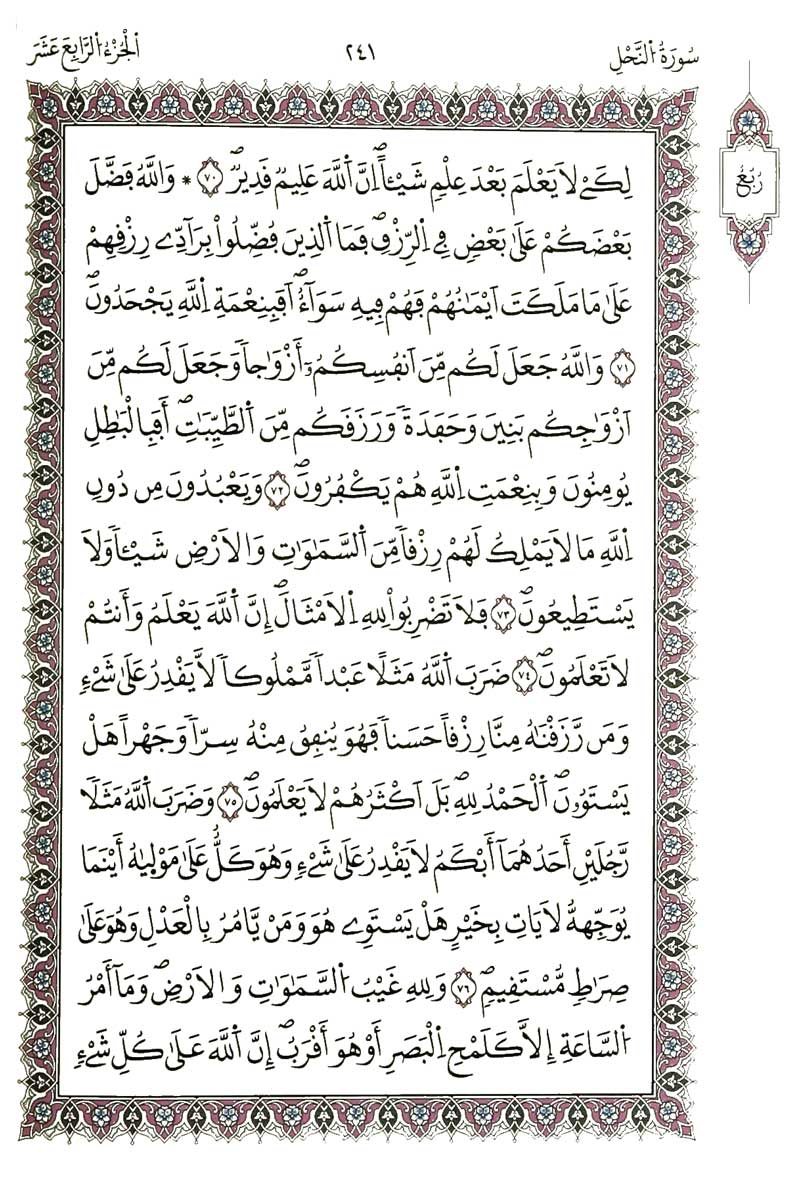 سُورَةُ اُ۬لنَّحْلِ
٢٤١
اَ۬لْجُزْءُ اُ۬لرَّابِعَ عَشَرَ
رُبُعُ
لِكَےْ لَا يَعْلَمَ بَعْدَ عِلْمٖ شَيْـٔاًۖ اِنَّ اَ۬للَّهَ عَلِيمٞ قَدِيرٞۖ ٧٠ * وَاللَّهُ فَضَّلَ
بَعْضَكُمْ عَلَىٰ بَعْضٖ فِے اِ۬لرِّزْقِۖ فَمَا اَ۬لذِينَ فُضِّلُواْ بِرَآدِّے رِزْقِهِمْ
عَلَىٰ مَا مَلَكَتَ اَيْمَٰنُهُمْ فَهُمْ فِيهِ سَوَآءٌۖ اَفَبِنِعْمَةِ اِ۬للَّهِ يَجْحَدُونَۖ
٧١ وَاللَّهُ جَعَلَ لَكُم مِّنَ اَنفُسِكُمُۥٓ أَزْوَٰجاٗ وَجَعَلَ لَكُم مِّنَ
اَزْوَٰجِكُم بَنِينَ وَحَفَدَةٗ وَرَزَقَكُم مِّنَ اَ۬لطَّيِّبَٰتِۖ أَفَبِالْبَٰطِلِ
يُومِنُونَ وَبِنِعْمَتِ اِ۬للَّهِ هُمْ يَكْفُرُونَۖ ٧٢ وَيَعْبُدُونَ مِن دُونِ
اِ۬للَّهِ مَا لَا يَمْلِكُ لَهُمْ رِزْقاٗ مِّنَ اَ۬لسَّمَٰوَٰتِ وَالَارْضِ شَيْـٔاٗ وَلَا
يَسْتَطِيعُونَۖ ٧٣ فَلَا تَضْرِبُواْ لِلهِ اِ۬لَامْثَالَۖ إِنَّ اَ۬للَّهَ يَعْلَمُ وَأَنتُمْ
لَا تَعْلَمُونَۖ ٧٤ ضَرَبَ اَ۬للَّهُ مَثَلًا عَبْداٗ مَّمْلُوكاٗ لَّا يَقْدِرُ عَلَىٰ شَےْءٖ
وَمَن رَّزَقْنَٰهُ مِنَّا رِزْقاً حَسَناٗ فَهُوَ يُنفِقُ مِنْهُ سِرّاٗ وَجَهْراً هَلْ
يَسْتَوُۥنَۖ اَ۬لْحَمْدُ لِلهِۖ بَلَ اَكْثَرُهُمْ لَا يَعْلَمُونَۖ ٧٥ وَضَرَبَ اَ۬للَّهُ مَثَلٗا
رَّجُلَيْنِ أَحَدُهُمَآ أَبْكَمُ لَا يَقْدِرُ عَلَىٰ شَےْءٖ وَهُوَ كَلٌّ عَلَىٰ مَوْلَيٰهُ أَيْنَمَا
يُوَجِّههُّ لَا يَاتِ بِخَيْرٍ هَلْ يَسْتَوِے هُوَ وَمَنْ يَّامُرُ بِالْعَدْلِ وَهُوَ عَلَىٰ
صِرَٰطٖ مُّسْتَقِيمٖۖ ٧٦ وَلِلهِ غَيْبُ اُ۬لسَّمَٰوَٰتِ وَالَارْضِۖ وَمَآ أَمْرُ
اُ۬لسَّاعَةِ إِلَّا كَلَمْحِ اِ۬لْبَصَرِ أَوْ هُوَ أَقْرَبُۖ إِنَّ اَ۬للَّهَ عَلَىٰ كُلِّ شَےْءٖ